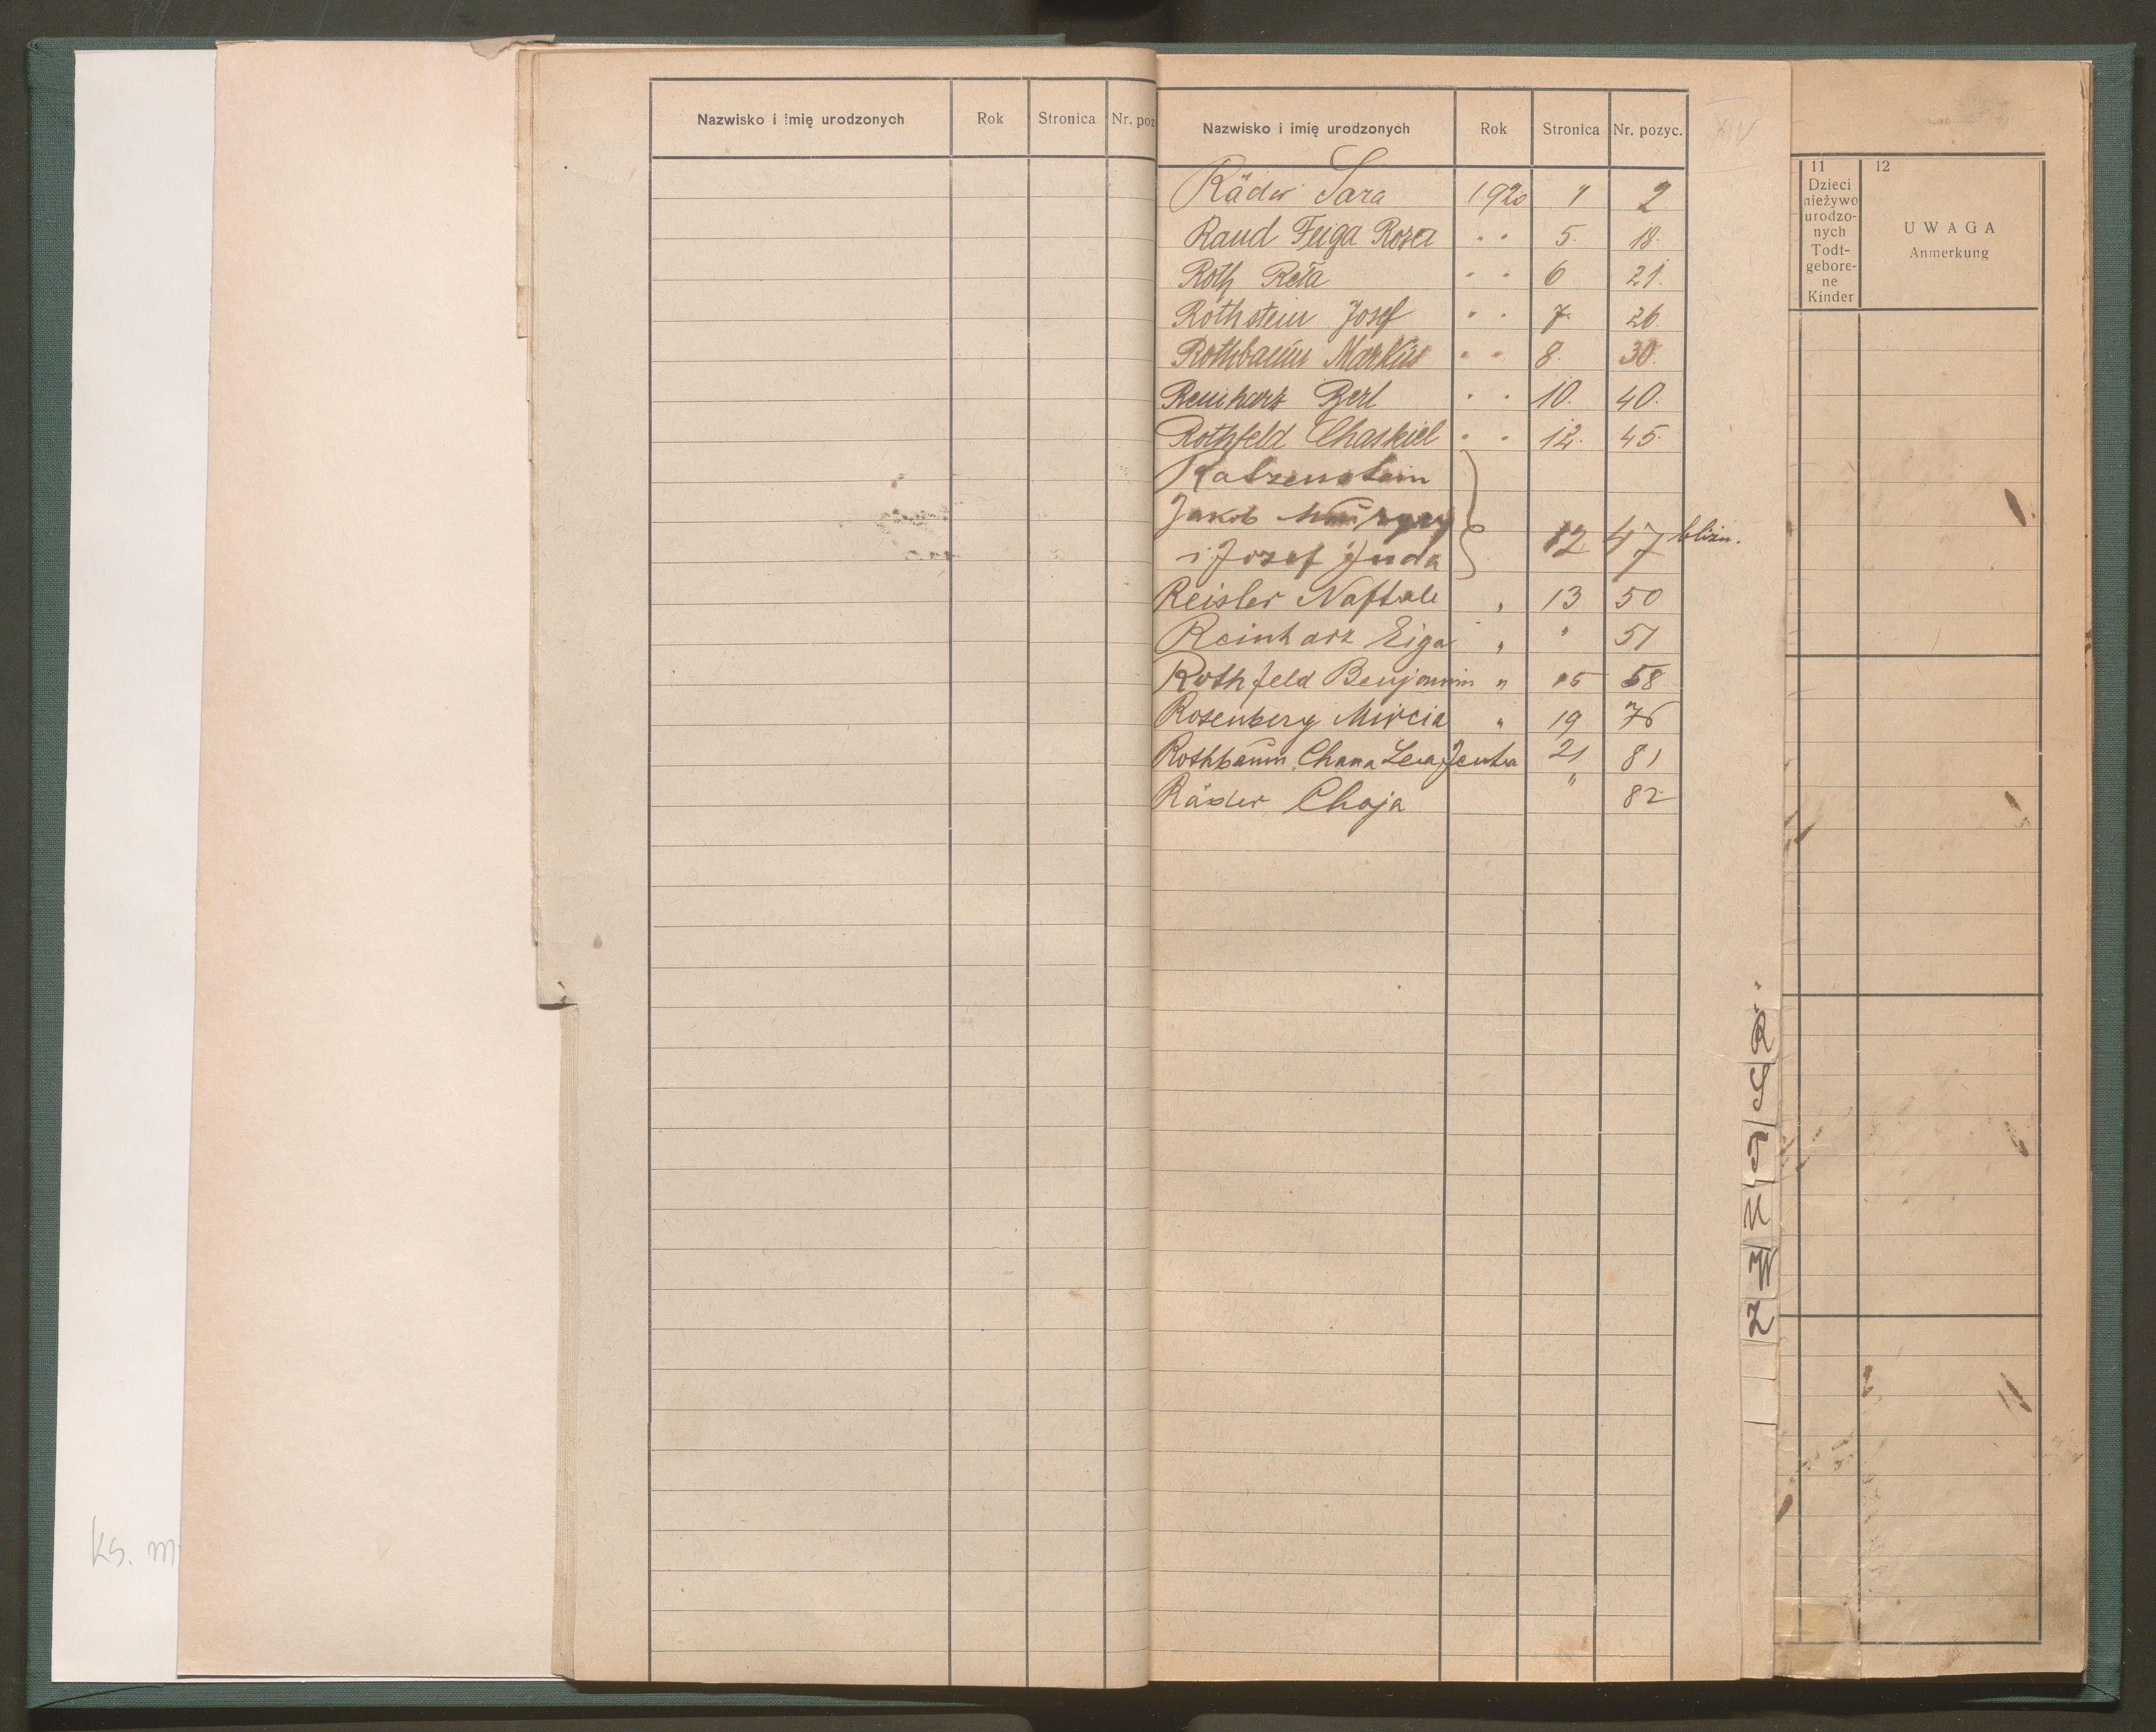 Nazwisko i imię urodzonych Rok Stronica Nr. poz
Nazwisko i imię urodzonych Rok Stronica Nr. pozyc.
XIV
Räder Sara 1920 1 2
Raud Feiga Roza " 5. 18.
Roth Reta " 6 21.
Rothstein Josef " 7. 26.
Rothbaum Markus " 8. 30.
Reinharz Berl " 10. 40.
Rothfeld Chaskiel " 12. 45.
Ratzenstein
Jakob
i Jozef Juda 12 47 bliźn.
Reisler Naftale " 13 50
Reinharz Eiga " " 51
Rothfeld Benjamin " 15 58
Rosenberg Mircia " 19 76
Rothbaum Chana Lea Jenta 21 81
Räder Choja " 82
R
S
T
U
W
Z
11
Dzieci
nieżywo
urodzo-
nych
Todt-
gebore-
ne
Kinder
12
UWAGA
Anmerkung
ks. m